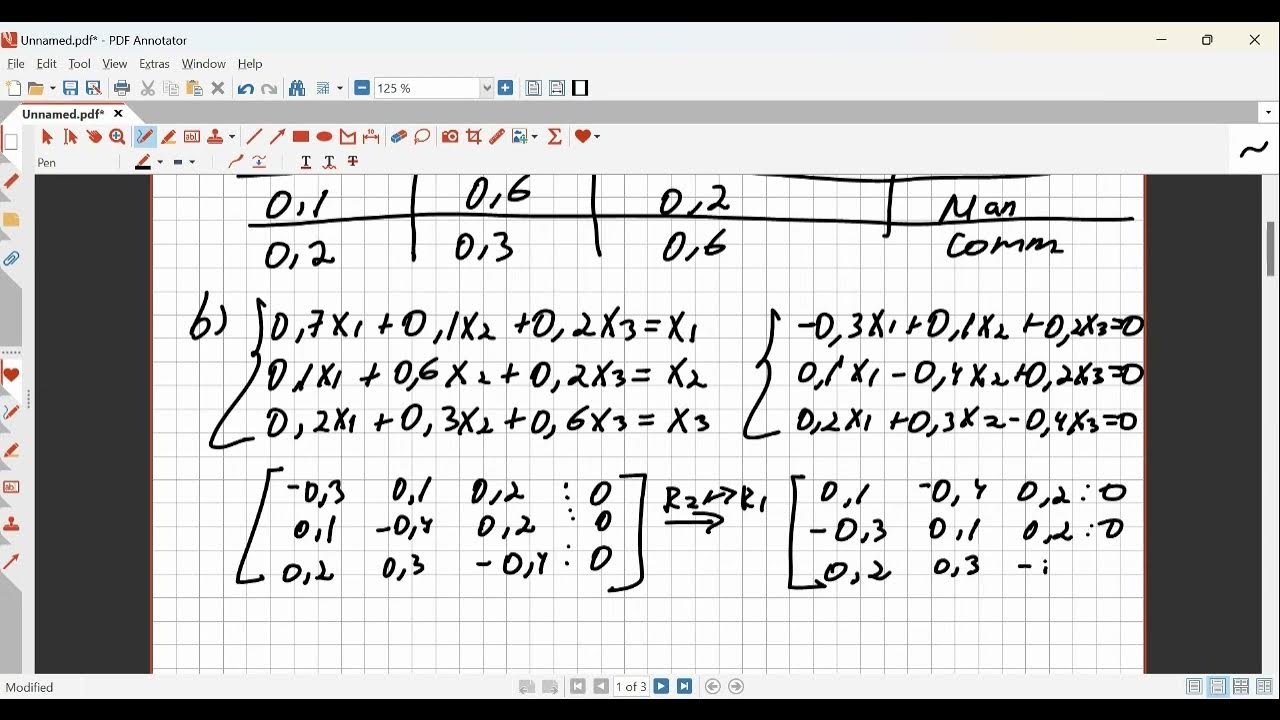 Unnamed.pdf* - PDF Annotator
File Edit Tool View Extras Window Help
125 %
Unnamed.pdf*
Pen
0,1 0,6 0,2 Man
0,2 0,3 0,6 Comm
b) 0,7x1 + 0,1x2 + 0,2x3 = x1 -0,3x1 + 0,1x2 + 0,2x3 = 0
0,1x1 + 0,6x2 + 0,2x3 = x2 0,1x1 - 0,4x2 + 0,2x3 = 0
0,2x1 + 0,3x2 + 0,6x3 = x3 0,2x1 + 0,3x2 - 0,4x3 = 0
-0,3 0,1 0,2 : 0 R2 ↔ R1 0,1 -0,4 0,2 : 0
0,1 -0,4 0,2 : 0 → -0,3 0,1 0,2 : 0
0,2 0,3 -0,4 : 0 0,2 0,3 -
Modified 1 of 3